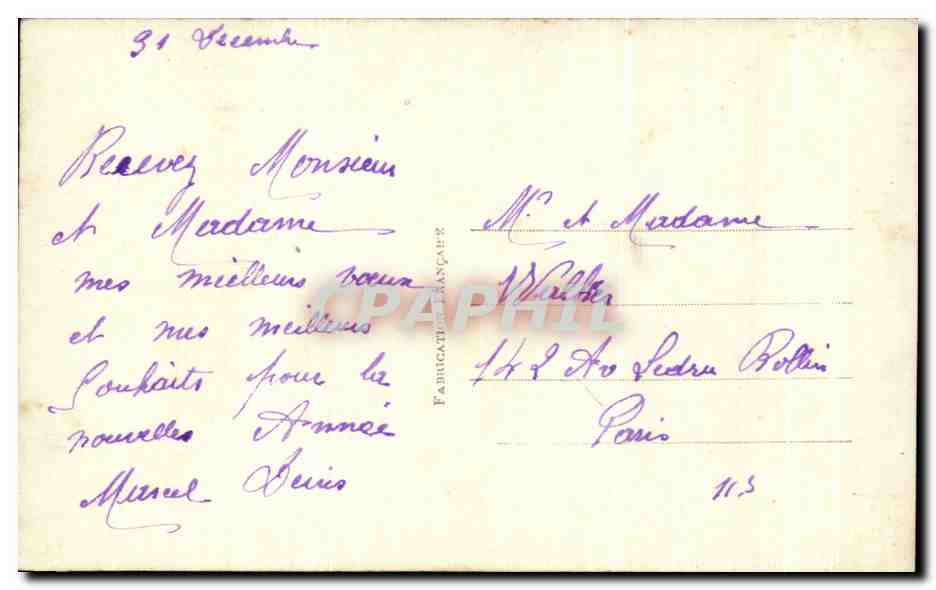 31 Decembre
Recevez Monsieur
et Madame
mes meilleurs vœux
et mes meilleurs
Souhaits pour la
nouvelles Année
Marcel Denis
FABRICATION FRANÇAISE
CPAPHIL
Mr et Madame
Walter
142 Av Ledru Rollin
Paris
113